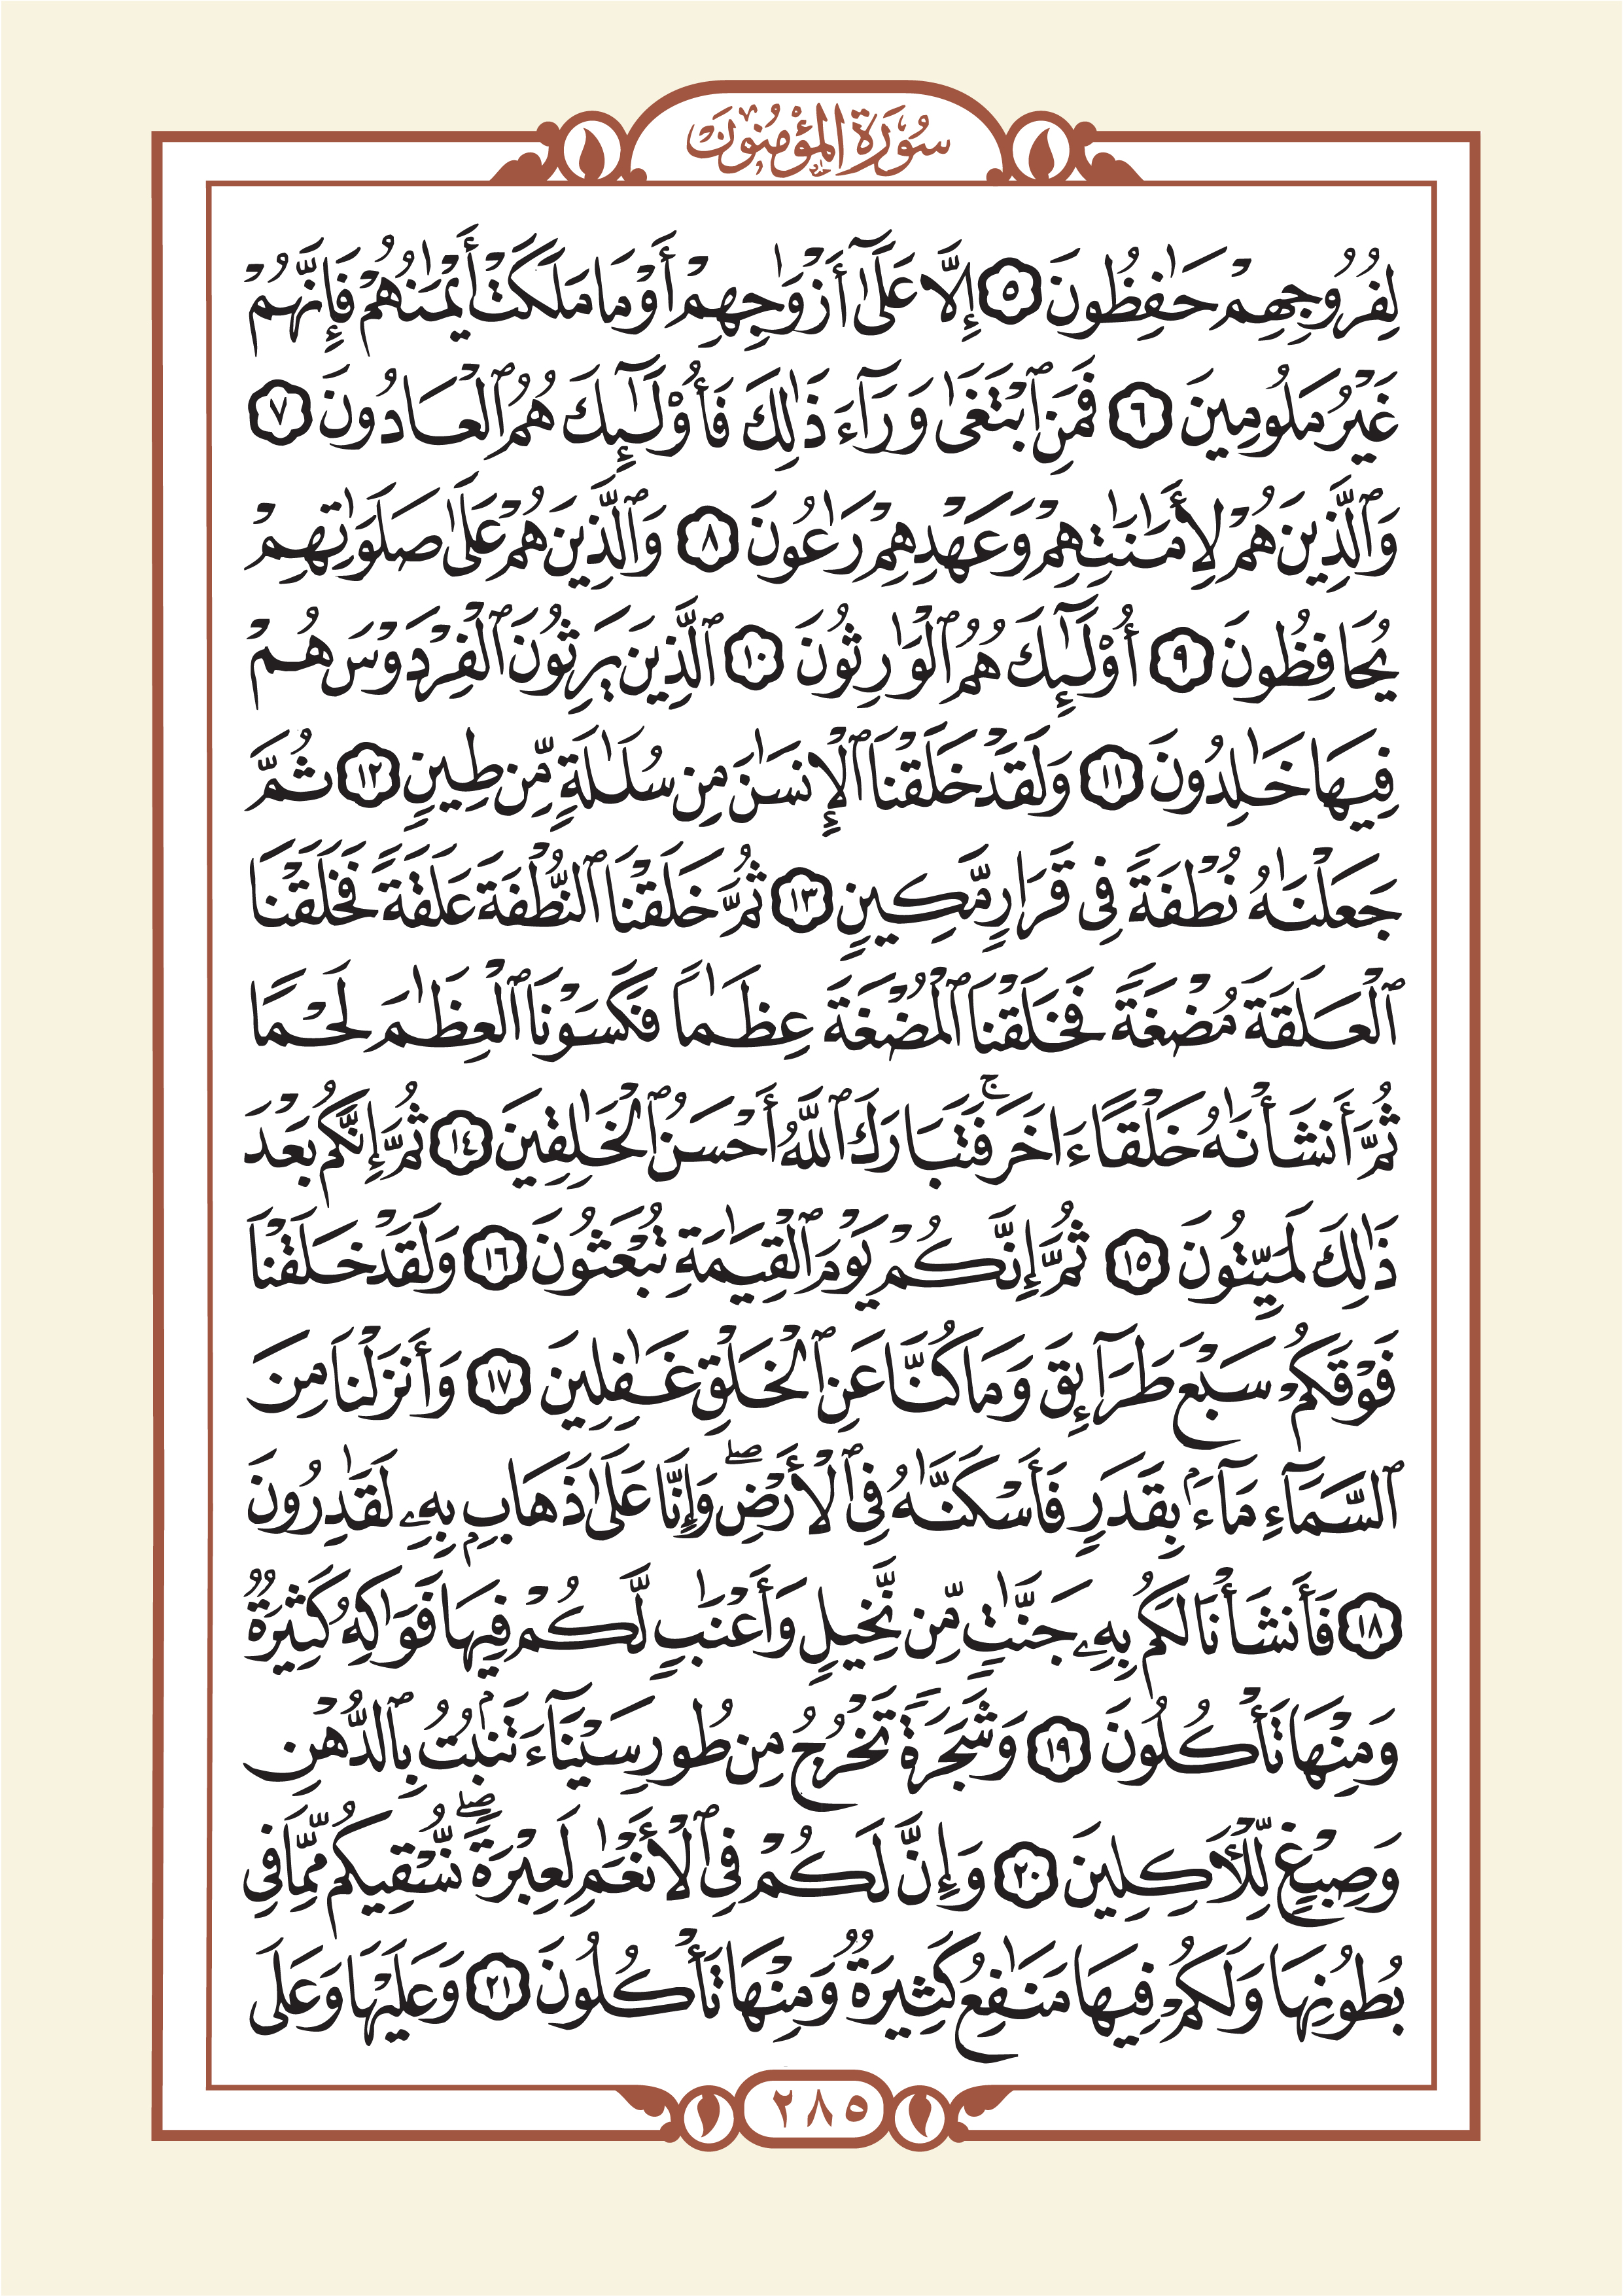 سُورَةُ المُؤْمِنُونَ
لِفُرُوجِهِمْ حَٰفِظُونَ ٥ إِلَّا عَلَىٰٓ أَزْوَٰجِهِمْ أَوْ مَا مَلَكَتْ أَيْمَٰنُهُمْ فَإِنَّهُمْ
غَيْرُ مَلُومِينَ ٦ فَمَنِ ٱبْتَغَىٰ وَرَآءَ ذَٰلِكَ فَأُوْلَٰٓئِكَ هُمُ ٱلْعَادُونَ ٧
وَٱلَّذِينَ هُمْ لِأَمَٰنَٰتِهِمْ وَعَهْدِهِمْ رَٰعُونَ ٨ وَٱلَّذِينَ هُمْ عَلَىٰ صَلَوَٰتِهِمْ
يُحَافِظُونَ ٩ أُوْلَٰٓئِكَ هُمُ ٱلْوَٰرِثُونَ ١٠ ٱلَّذِينَ يَرِثُونَ ٱلْفِرْدَوْسَ هُمْ
فِيهَا خَٰلِدُونَ ١١ وَلَقَدْ خَلَقْنَا ٱلْإِنسَٰنَ مِن سُلَٰلَةٍ مِّن طِينٍ ١٢ ثُمَّ
جَعَلْنَٰهُ نُطْفَةً فِى قَرَارٍ مَّكِينٍ ١٣ ثُمَّ خَلَقْنَا ٱلنُّطْفَةَ عَلَقَةً فَخَلَقْنَا
ٱلْعَلَقَةَ مُضْغَةً فَخَلَقْنَا ٱلْمُضْغَةَ عِظَٰمًا فَكَسَوْنَا ٱلْعِظَٰمَ لَحْمًا
ثُمَّ أَنشَأْنَٰهُ خَلْقًا ءَاخَرَ ۚ فَتَبَارَكَ ٱللَّهُ أَحْسَنُ ٱلْخَٰلِقِينَ ١٤ ثُمَّ إِنَّكُم بَعْدَ
ذَٰلِكَ لَمَيِّتُونَ ١٥ ثُمَّ إِنَّكُمْ يَوْمَ ٱلْقِيَٰمَةِ تُبْعَثُونَ ١٦ وَلَقَدْ خَلَقْنَا
فَوْقَكُمْ سَبْعَ طَرَآئِقَ وَمَا كُنَّا عَنِ ٱلْخَلْقِ غَٰفِلِينَ ١٧ وَأَنزَلْنَا مِنَ
ٱلسَّمَآءِ مَآءًۢ بِقَدَرٍ فَأَسْكَنَّٰهُ فِى ٱلْأَرْضِ ۖ وَإِنَّا عَلَىٰ ذَهَابٍۭ بِهِۦ لَقَٰدِرُونَ
١٨ فَأَنشَأْنَا لَكُم بِهِۦ جَنَّٰتٍ مِّن نَّخِيلٍ وَأَعْنَٰبٍ لَّكُمْ فِيهَا فَوَٰكِهُ كَثِيرَةٌ
وَمِنْهَا تَأْكُلُونَ ١٩ وَشَجَرَةً تَخْرُجُ مِن طُورِ سَيْنَآءَ تَنۢبُتُ بِٱلدُّهْنِ
وَصِبْغٍ لِّلْأَٰكِلِينَ ٢٠ وَإِنَّ لَكُمْ فِى ٱلْأَنْعَٰمِ لَعِبْرَةً ۖ نُّسْقِيكُم مِّمَّا فِى
بُطُونِهَا وَلَكُمْ فِيهَا مَنَٰفِعُ كَثِيرَةٌ وَمِنْهَا تَأْكُلُونَ ٢١ وَعَلَيْهَا وَعَلَى
٢٨٥